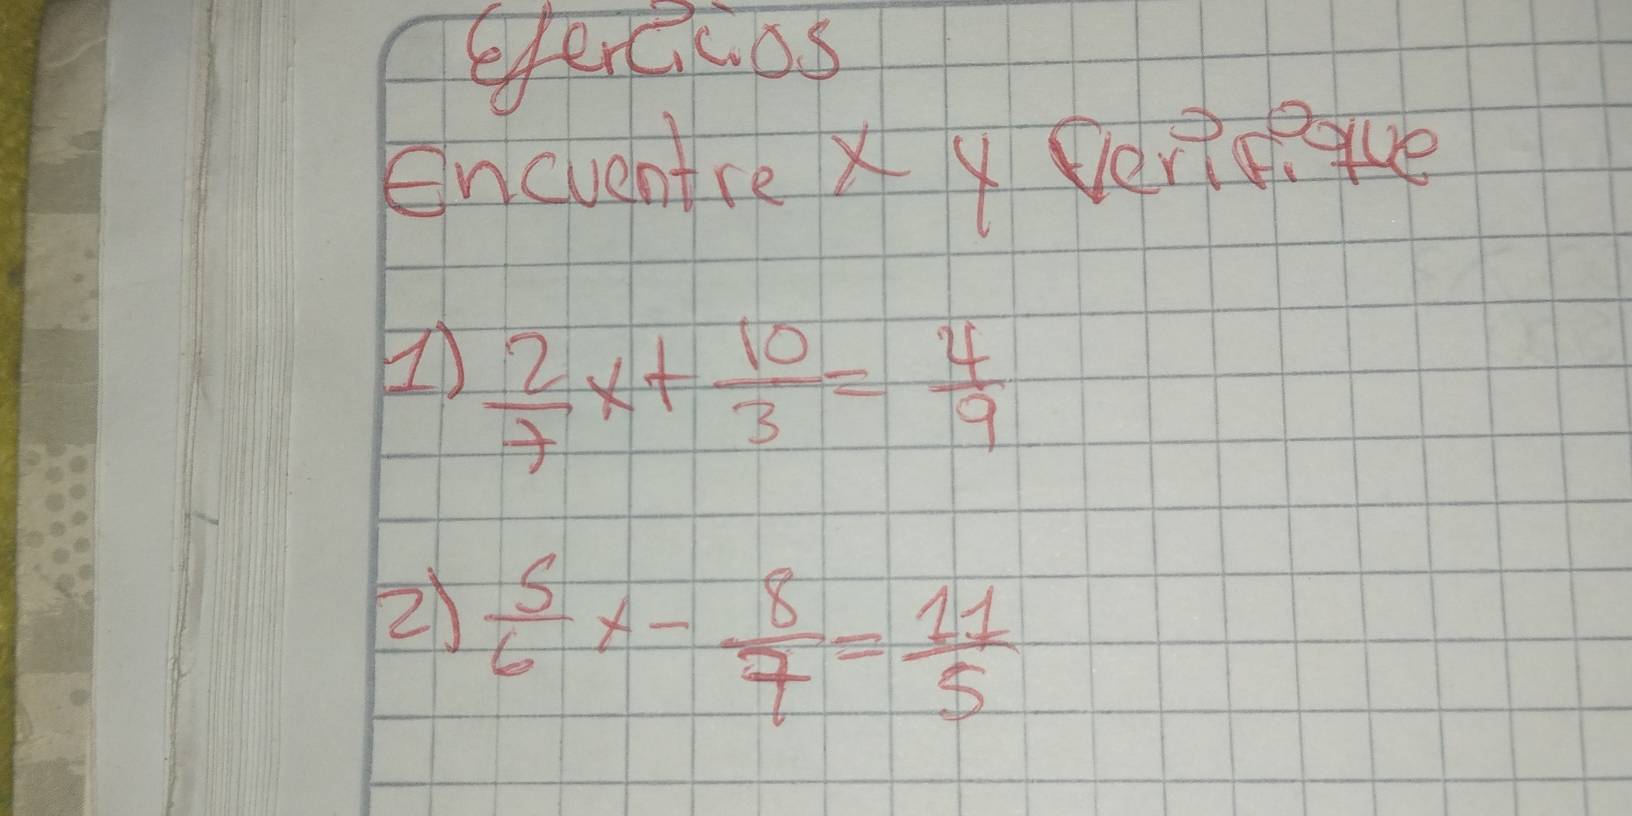 Ejercicios
Encuentre x y Verifique
1) 2/7 x + 10/3 = 4/9
2) 5/6 x - 8/7 = 11/5